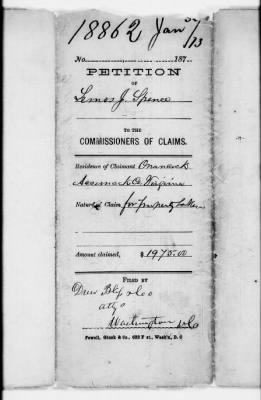 18862 Jan
/73
No. 187
PETITION
OF
J. Spence
TO THE
COMMISSIONERS OF CLAIMS.
Residence of Claimant Onancock
Accomack Co Virginia
Nature of Claim, for property taken
Amount claimed, $ 1975.00
FILED BY
& Co
attys
Washington D C
Powell, Ginck & Co., 632 F st., Wash'n, D. C